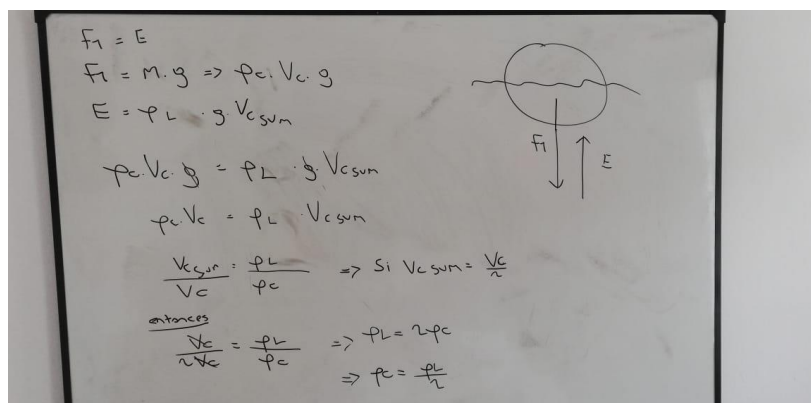 F1 = E
F1 = m.g => ρc.Vc.g
E = ρL . g.Vcsum
F1
E
ρc.Vc.g = ρL . g.Vcsum
ρc.Vc = ρL .Vcsum
Vcsum/Vc = ρL/ρc => Si Vcsum = Vc/2
entonces
Vc/2Vc = ρL/ρc => ρL = 2ρc
=> ρc = ρL/2